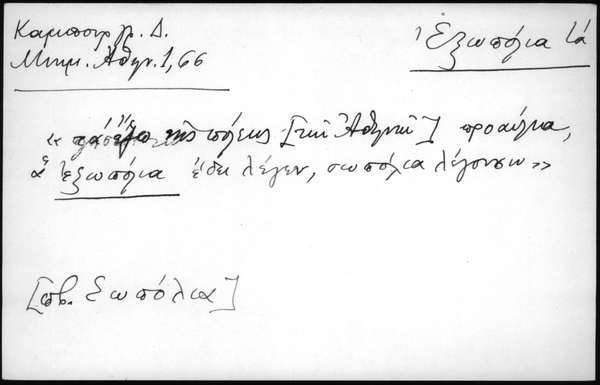 Καμπούρ γρ. Δ.
Μνημ. Αθην. 1, 66
Ἐξωπόλια τά
« τὰ ἔξω τῆς πόλεως [τῶν Ἀθηνῶν] προαύλια,
ἃ ἐξωπόλια ἔδει λέγειν, σωπόλια λέγουσιν »
[πβ. ξωπόλια]